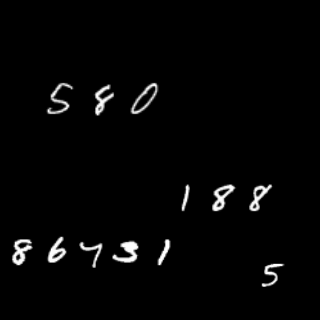 580
188
86731
5